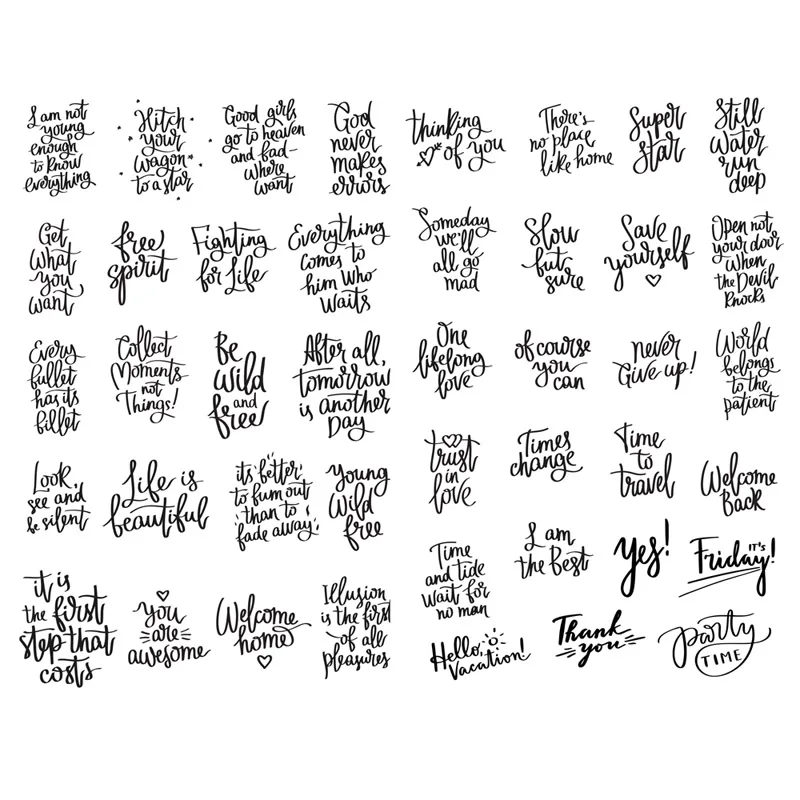 I am not
young
enough
to know
everything
Hitch
your
wagon
to a star
Good girls
go to heaven
and bad-
where
want
God
never
makes
errors
thinking
of you
There's
no place
like home
Super
star
Still
water
run
deep
Get
what
you
want
free
spirit
Fighting
for Life
Everything
comes to
him who
waits
Someday
we'll
all go
mad
Slow
but
sure
Save
yourself
Open not
your door
when
the Devil
knocks
Every
bullet
has its
billet
Collect
Moments
not
Things!
Be
wild
and
free
After all,
tomorrow
is another
Day
One
lifelong
love
of course
you
can
never
Give up!
World
belongs
to the
patient
Look,
see and
be silent
Life is
beautiful
it's better
to burn out
than to
fade away
Young
Wild
free
trust
in
love
Times
change
Time
to
travel
Welcome
Back
Time
and tide
wait for
no man
I am
the Best
yes!
IT'S
Friday!
it is
the first
step that
costs
you
are
awesome
Welcome
home
Illusion
is the first
of all
pleasures
Hello,
Vacation!
Thank
you
party
TIME